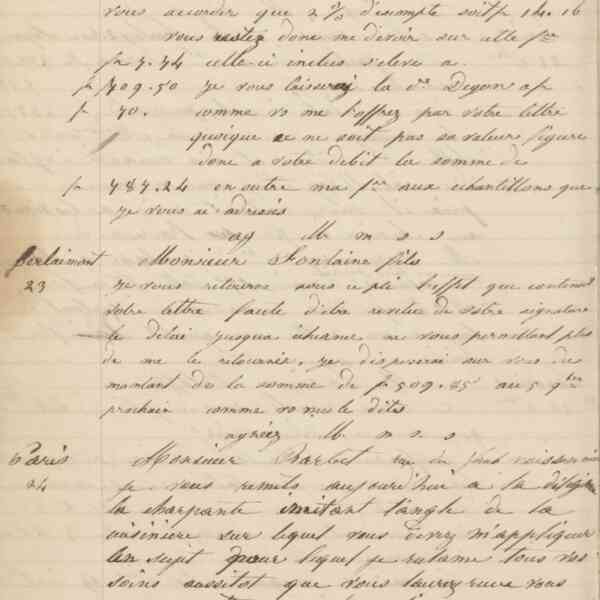 vous accorder que 2 % d'escompte soit f 14.16
vous restez donc me devoir sur cette fre
fr 7.74 celle-ci inclus s'eleve a
f 709.50 je vous laisserai la Degon a f
f 70. comme vs me l'offrez par votre lettre
quoique ce ne soit pas sa valeur figure
donc a votre debit la somme de
f 787.24 en outre ma fre aux echantillons que
je vous ai adressés
ag M m s s
Berlaimont Monsieur Fontaine fils
23 je vous retourne sous ce pli l'effet que contenait
votre lettre faute d'etre revetu de votre signature
le delai jusqua écheance ne vous permettant plus
de me le retourner, je disposerai sur vous du
montant de la somme de f 509.85 au 5 9bre
prochain comme vs me le dites
agréez M m s s
Paris Monsieur Barbet rue du
24 je vous remets aujourd'hui a la diligence
la charpente imitant l'angle de la
cuisiniere sur lequel vous devez m'appliquer
un sujet pour lequel je reclame tous vos
soins aussitot que vous l'aurez recu vous